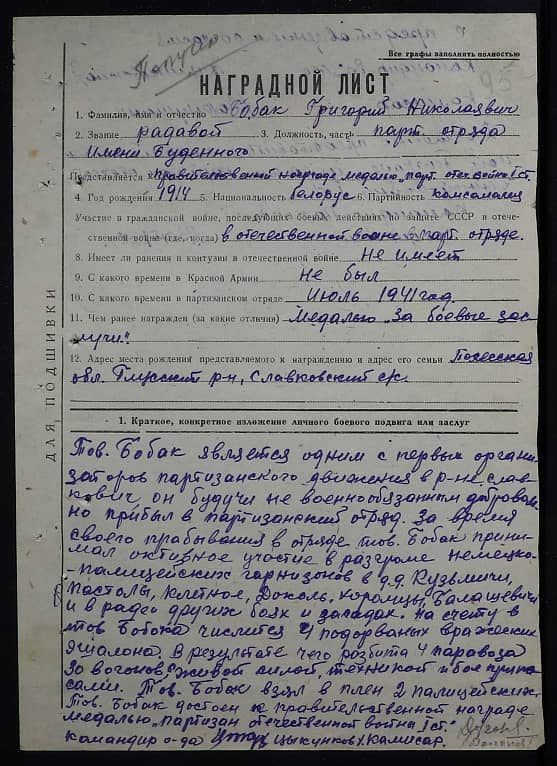 Все графы заполнять полностью
НАГРАДНОЙ ЛИСТ
1. Фамилия, имя и отчество Бобак Григорий Николаявич
2. Звание радавой 3. Должность, часть парт. отряда
имени Буденного
Представляется к правительственной награде медалью „парт. отеч. войны I ст.
4. Год рождения 1914 5. Национальность белорус 6. Партийность комсомалец
Участие в гражданской войне, последующих боевых действиях по защите СССР и отече-
ственной войне (где, когда) в отечественной воине в парт. отряде.
8. Имеет ли ранения и контузии в отечественной войне Не имеет
9. С какого времени в Красной Армии не был
10. С какого времени в партизанском отряде Июль 1941 год.
11. Чем ранее награжден (за какие отличия) Медалью „За боевые зас
лучи".
12. Адрес места рождения представляемого к награждению и адрес его семьи Полесская
обл. Глусский р-н, Славковский с/с.
ДЛЯ ПОДШИВКИ
1. Краткое, конкретное изложение личного боевого подвига или заслуг
Тов. Бобак является одним с первых органи-
заторов партизанского движения в р-не слав-
кович он будучи не военнообязанным доброволь
но прибыл в партизанский отряд. За время
своего прабывания в отряде тов. Бобак прини-
мал активное участие в разгроме немецко-
-палицейских гарнизонов в д.д. Кузьмичи,
Пастолы, Клетное, Доколь, Хоромцы, Балашевичи
и в радео других боях и засадах. На счету в
тов Бобока числится 4 подорваных вражеских
эшалона. В результате чего розбита 4 паравоза
30 вогонов с живой силой, техникой и бое припа
сами. Тов. Бобак взял в плен 2 палицейских.
Тов. Бобак достоен к правительственной награде
медалью „партизан отечественной войны I ст."
командир о-да Цыкунков, Камисар.